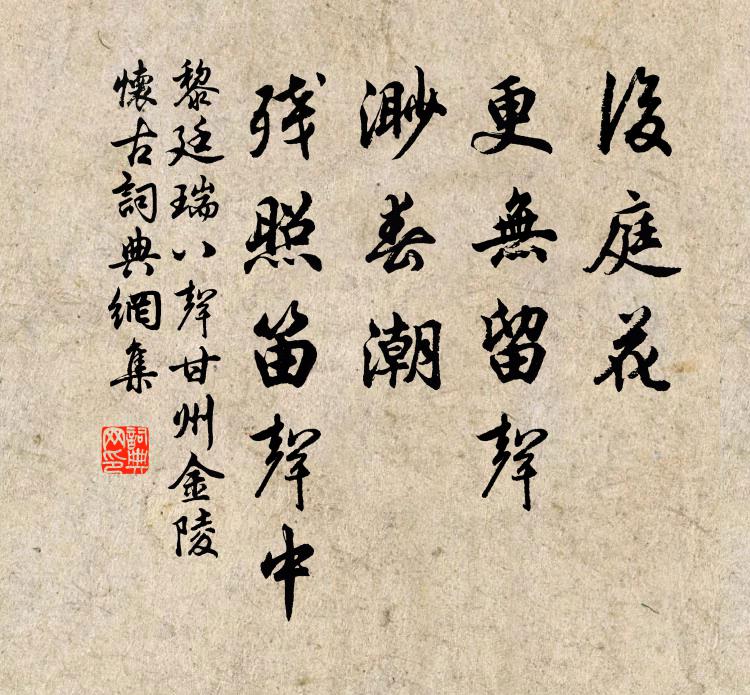 後庭花
更無留聲
渺春潮
残照笛聲中
黎廷瑞八聲甘州金陵
懷古詞典網集
詞典
网印